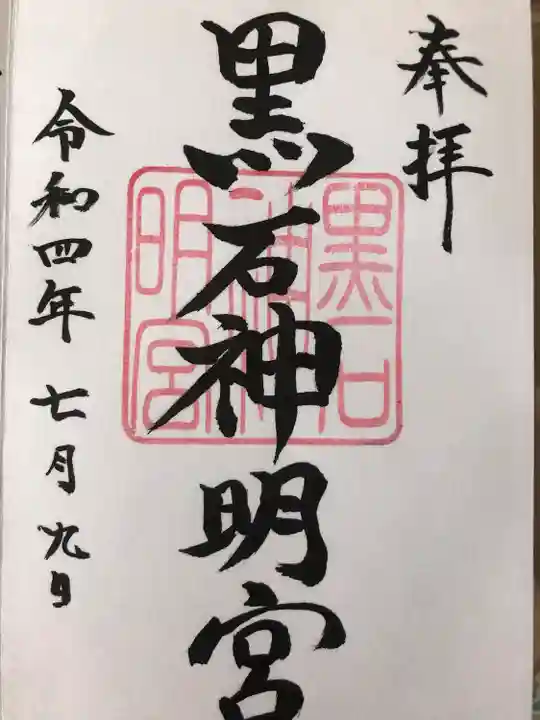 奉拝
黒石神明宮
黒石
神
明宮
令和四年七月九日